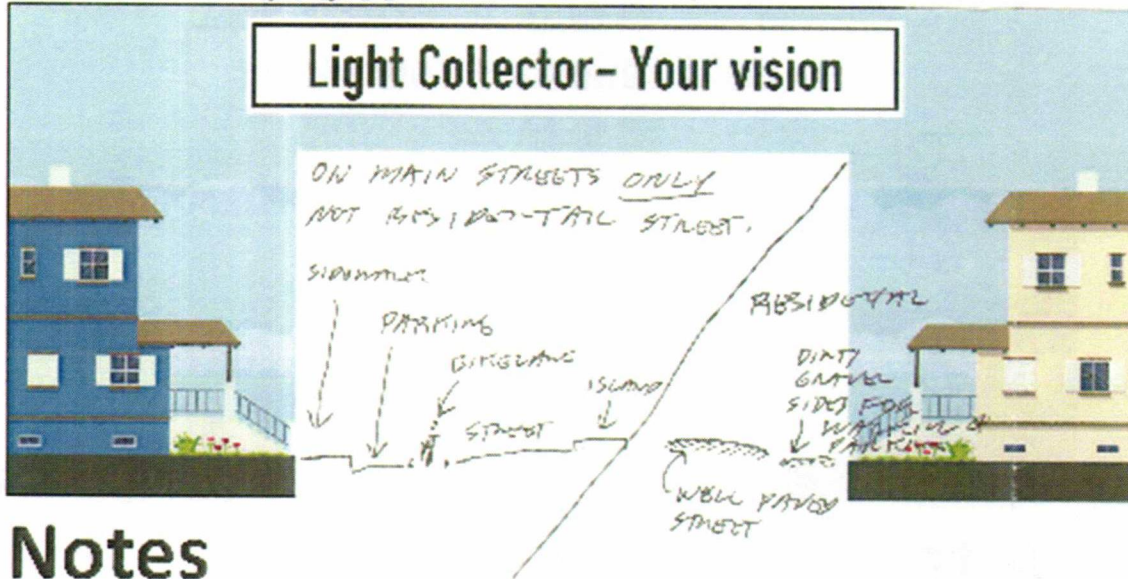 Light Collector– Your vision
ON MAIN STREETS ONLY
NOT RESIDET-TAIL STREET.
SIDEWALK
PARKING
BIKELANE
STREET
ISLAND
RESIDETAL
DIRTY
GRAVEL
SIDES FOR
WALKING &
PARKING
WELL PAVED
STREET
Notes